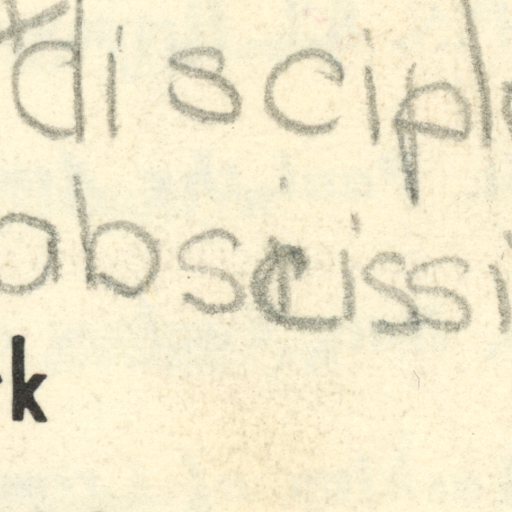 discipl
abscissi
k